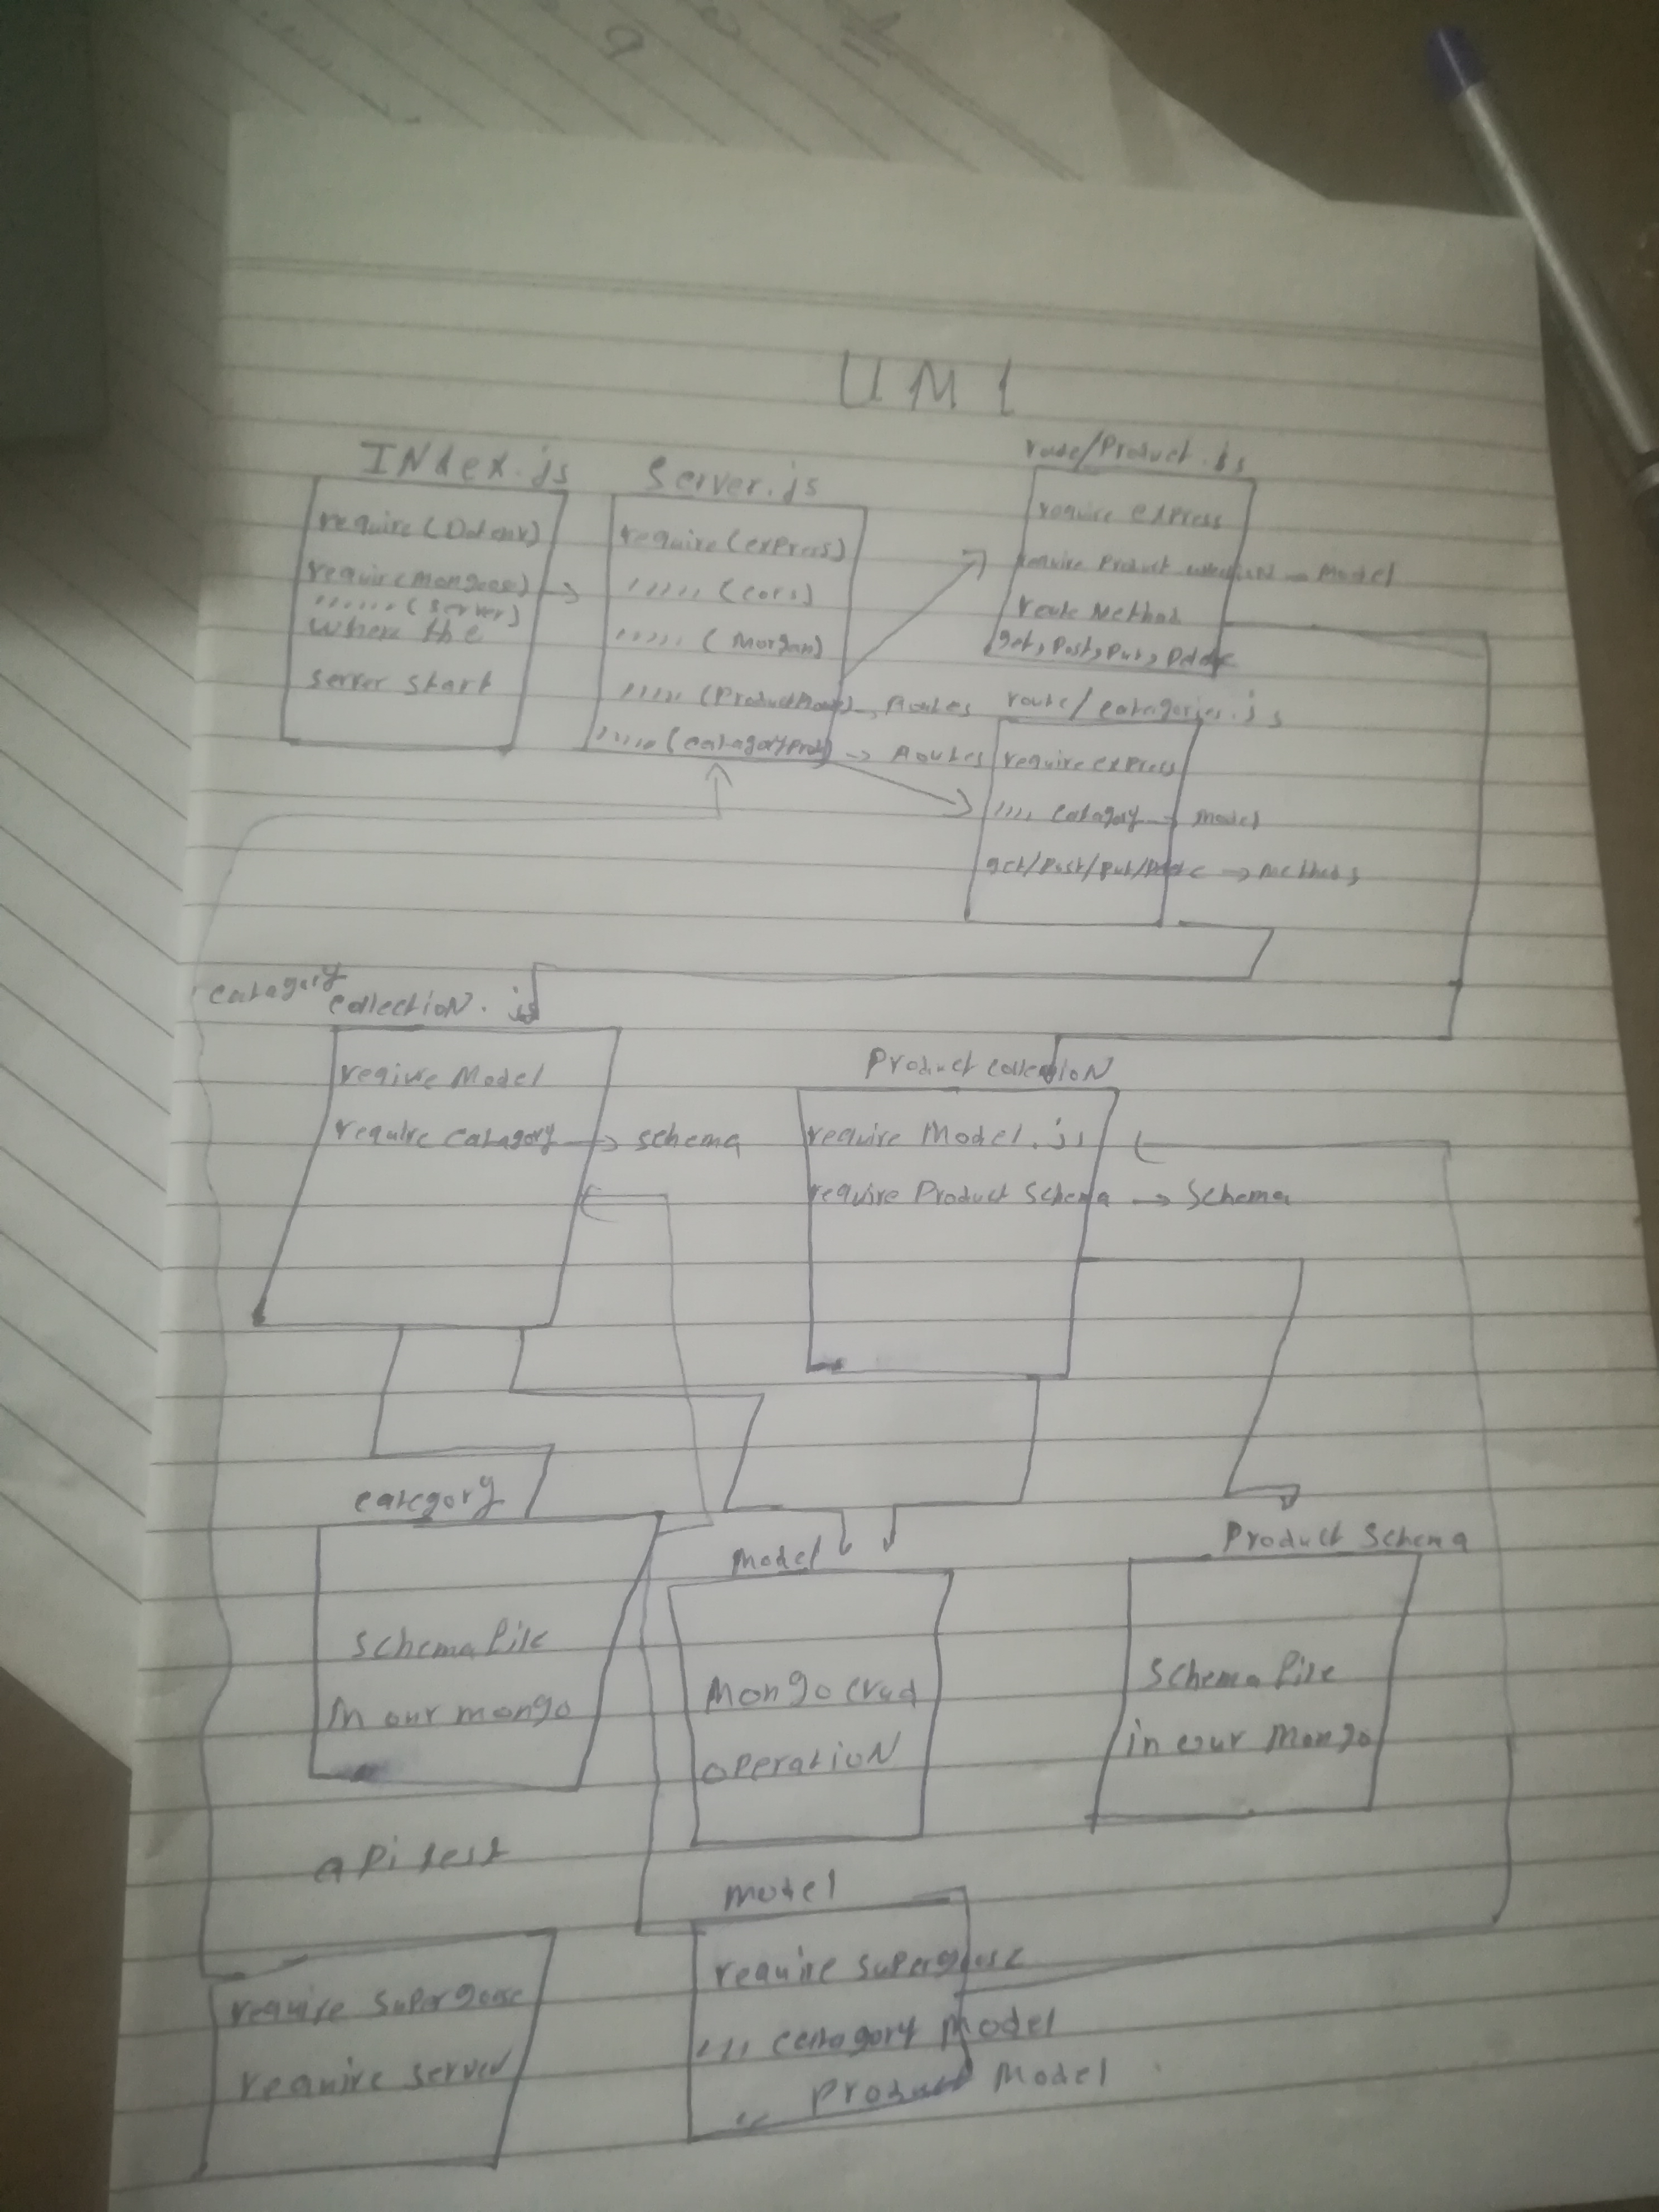 UML
INdex.js
require (Dotenv)
require(mongoose) →
,,,,,, (server)
where the
server start
Server.js
require (express)
,,,,, (cors)
,,,,, (Morgan)
,,,,, → Routes
,,,,, → Routes
route/Product.js
require express
require Product → Model
route Method
get, Post, Put,
route/categories.js
require express
,,,, catagory → Model
get/Post/put/ → Methods
catagory
collectioN.js
reqiure Model
require catagory → schema
Product CollectioN
require Model.js
require Product Schema → Schema
category
Schema file
in our mongo
Model
Mongo crud
operatioN
Product Schema
Schema file
in our Mongo
aPi test
require supergoose
require server
model
require supergoose
,,, catagory Model
,, Product Model